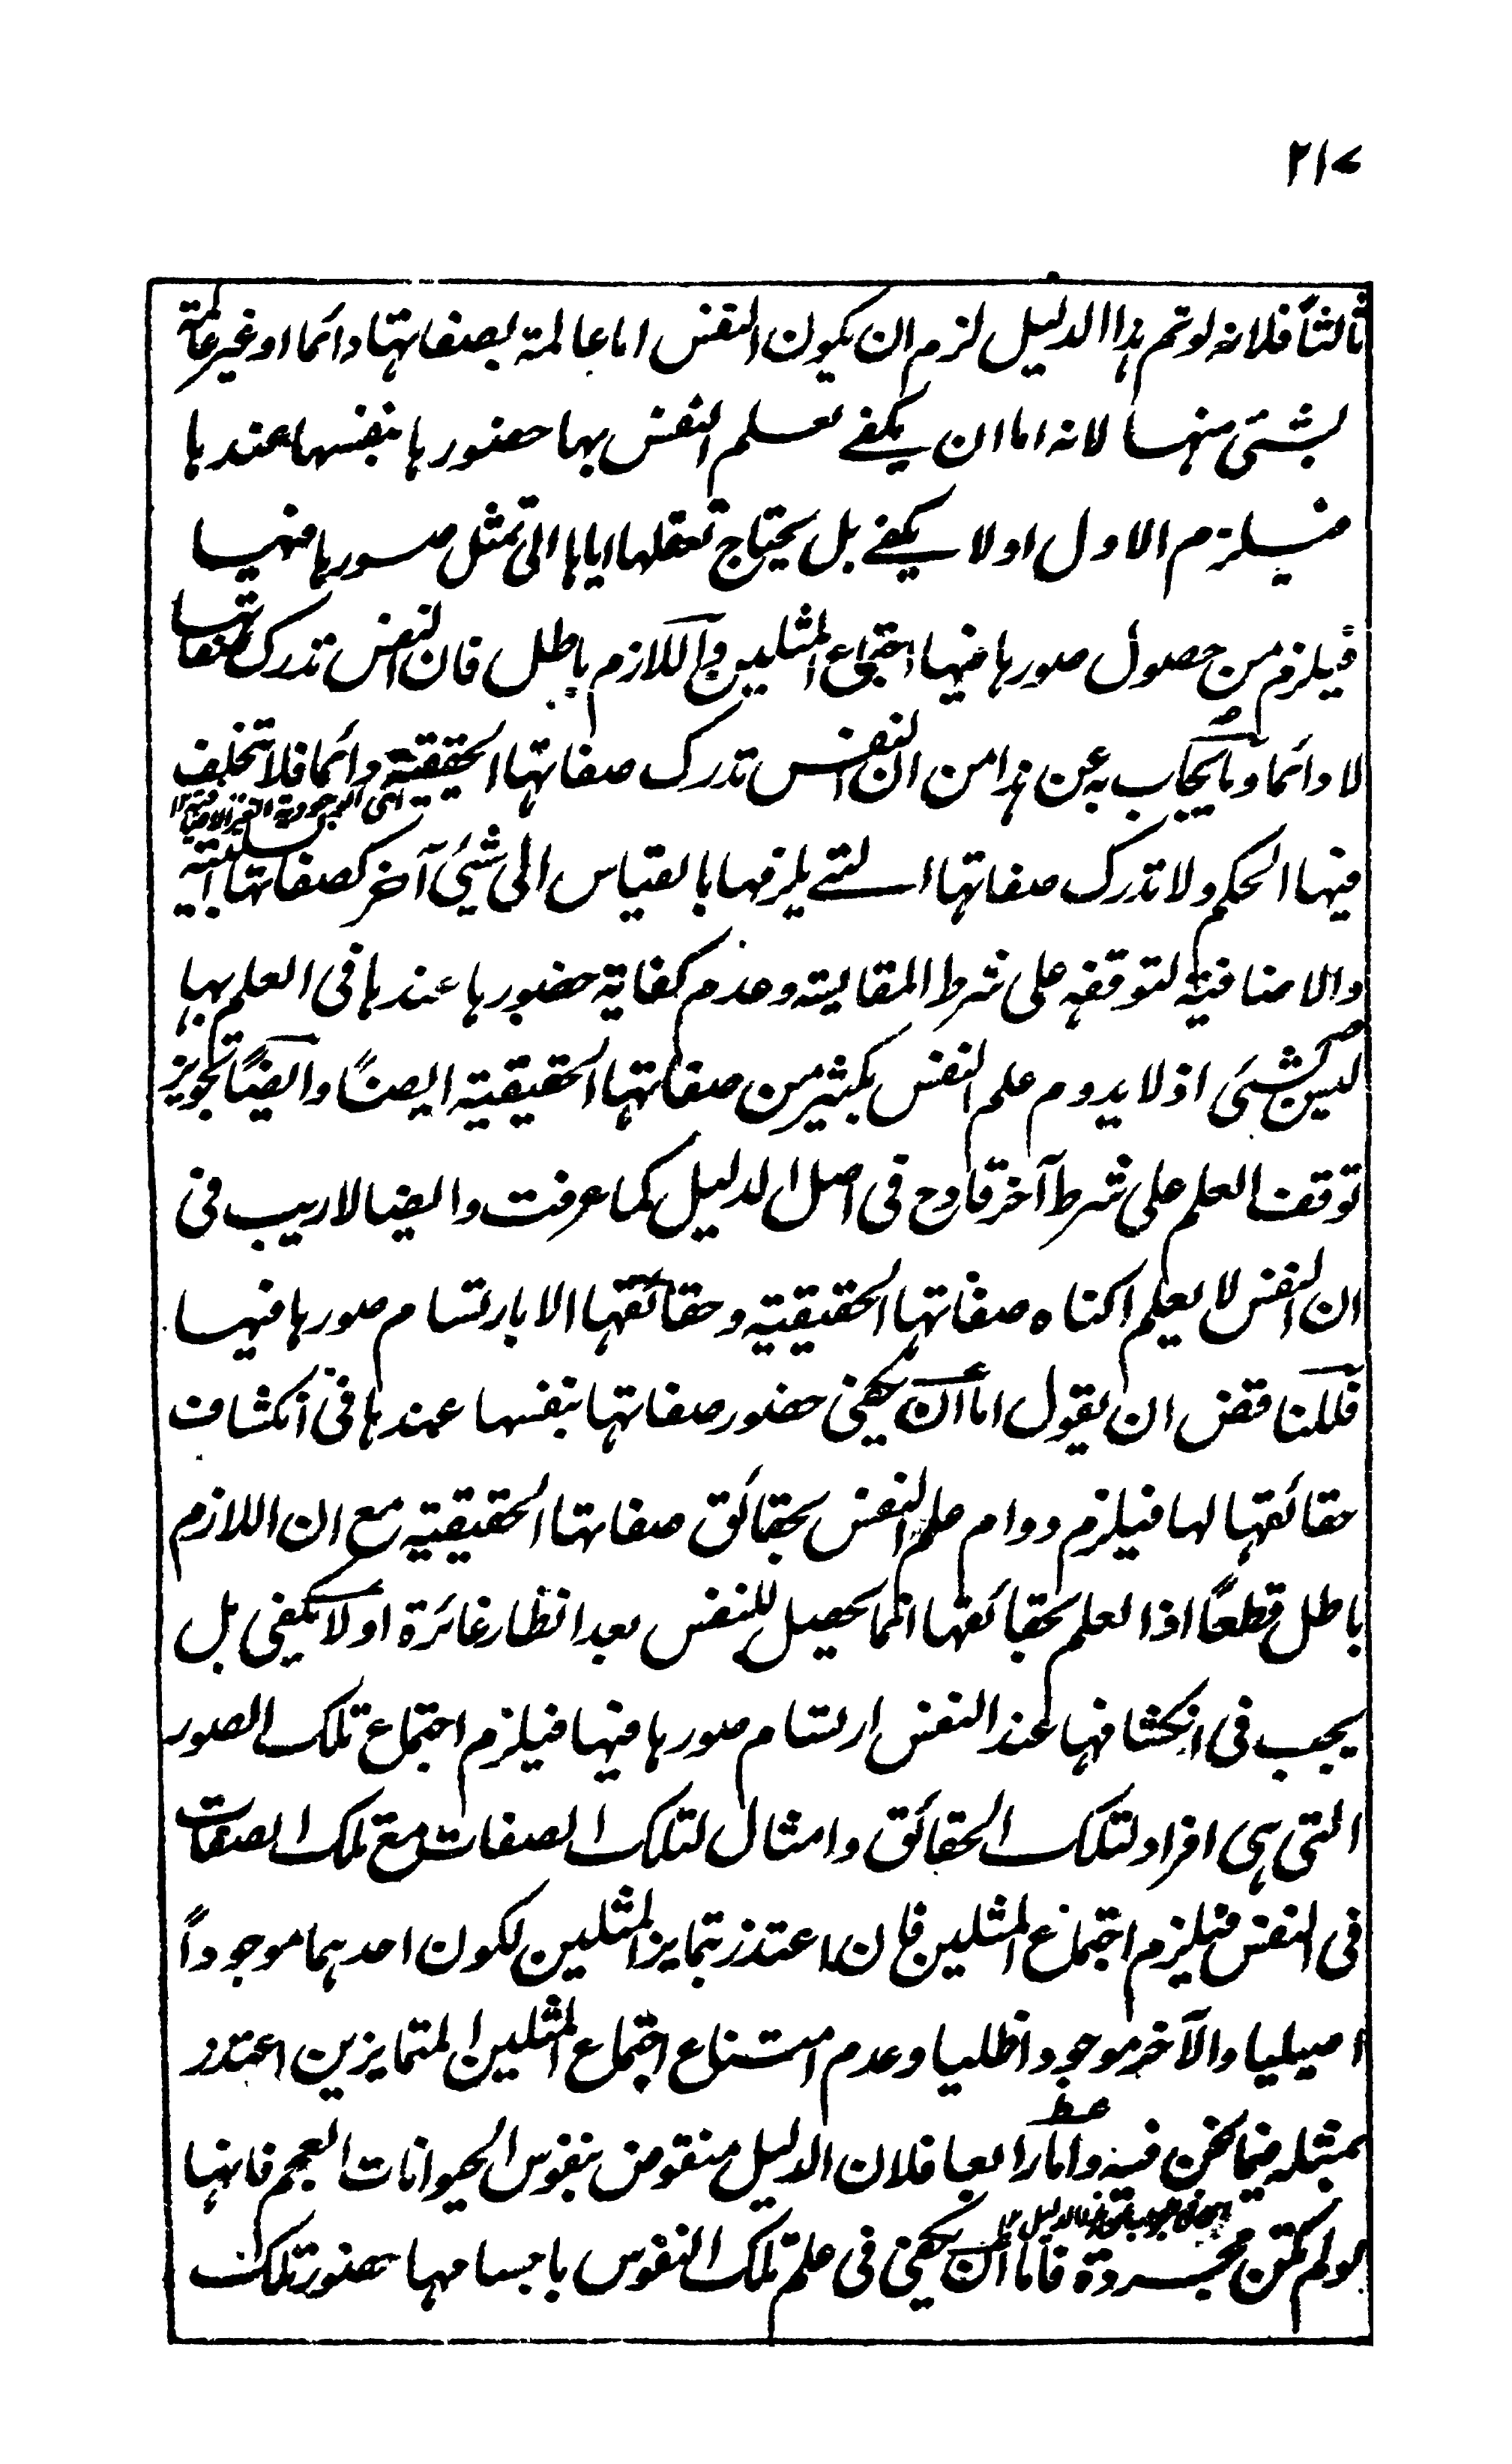 ٢١٧
ثالثاً فلانه لو تم هذا الدليل لزم ان يكون النفس اما عالمة بصفاتها دائما او غير عالمة
بشئ منها لانه اما ان يكفے لعلم النفس بها حضورها بنفسها عندها
فيلزم الاول او لا يكفے بل يحتاج تعقلها اياها الى تمثل صورها فيها
فيلزم من حصول صورها فيها اجتماع المثلين واللازم باطل فان النفس تدرك صفاتها
لا دائما وما يجاب به عن هذا من ان النفس تدرك صفاتها الحقيقية دائما فلا تخلف
فيها الحكم ولا تدرك صفاتها التے يلزمها بالقياس الى شئ آخر كصفاتها السلبية
والاضافية لتوقفه على شرط المقايسة وعدم كفاية حضورها عندها فى العلم بها
ليس بشئ اذ لا يدوم علم النفس بكثير من صفاتها الحقيقية ايضاً وايضاً تجويز
توقف العلم على شرط آخر قادح فى اصل الدليل كما عرفت وايضا لا ريب فى
ان النفس لا يعلم اكناه صفاتها الحقيقية وحقائقها الا بارتسام صورها فيها
فللناقض ان يقول اما ان يكفى حضور صفاتها بنفسها عندها فى انكشاف
حقائقها لها فيلزم دوام علم النفس بحقائق صفاتها الحقيقية مع ان اللازم
باطل قطعاً اذ العلم بحقائقها انما يحصل للنفس بعد انظار غائرة او لا يكفى بل
يجب فى انكشافها عند النفس ارتسام صورها فيها فيلزم اجتماع تلك الصور
التى هى افراد لتلك الحقائق وامثال لتلك الصفات مع تلك الصفات
فى النفس فيلزم اجتماع المثلين فان اعتذر بتمايز المثلين لكون احدهما موجوداً
اصيليا والآخر موجودا ظليا وعدم امتناع اجتماع المثلين المتمايزين اعتذر
بمثله فيما نحن فيه واما رابعا فلان الدليل منقوض بنفوس الحيوانات العجم فانها
لو لم تكن مجردة فاما ان يكفى فى علم تلك النفوس باجسامها حضور تلك